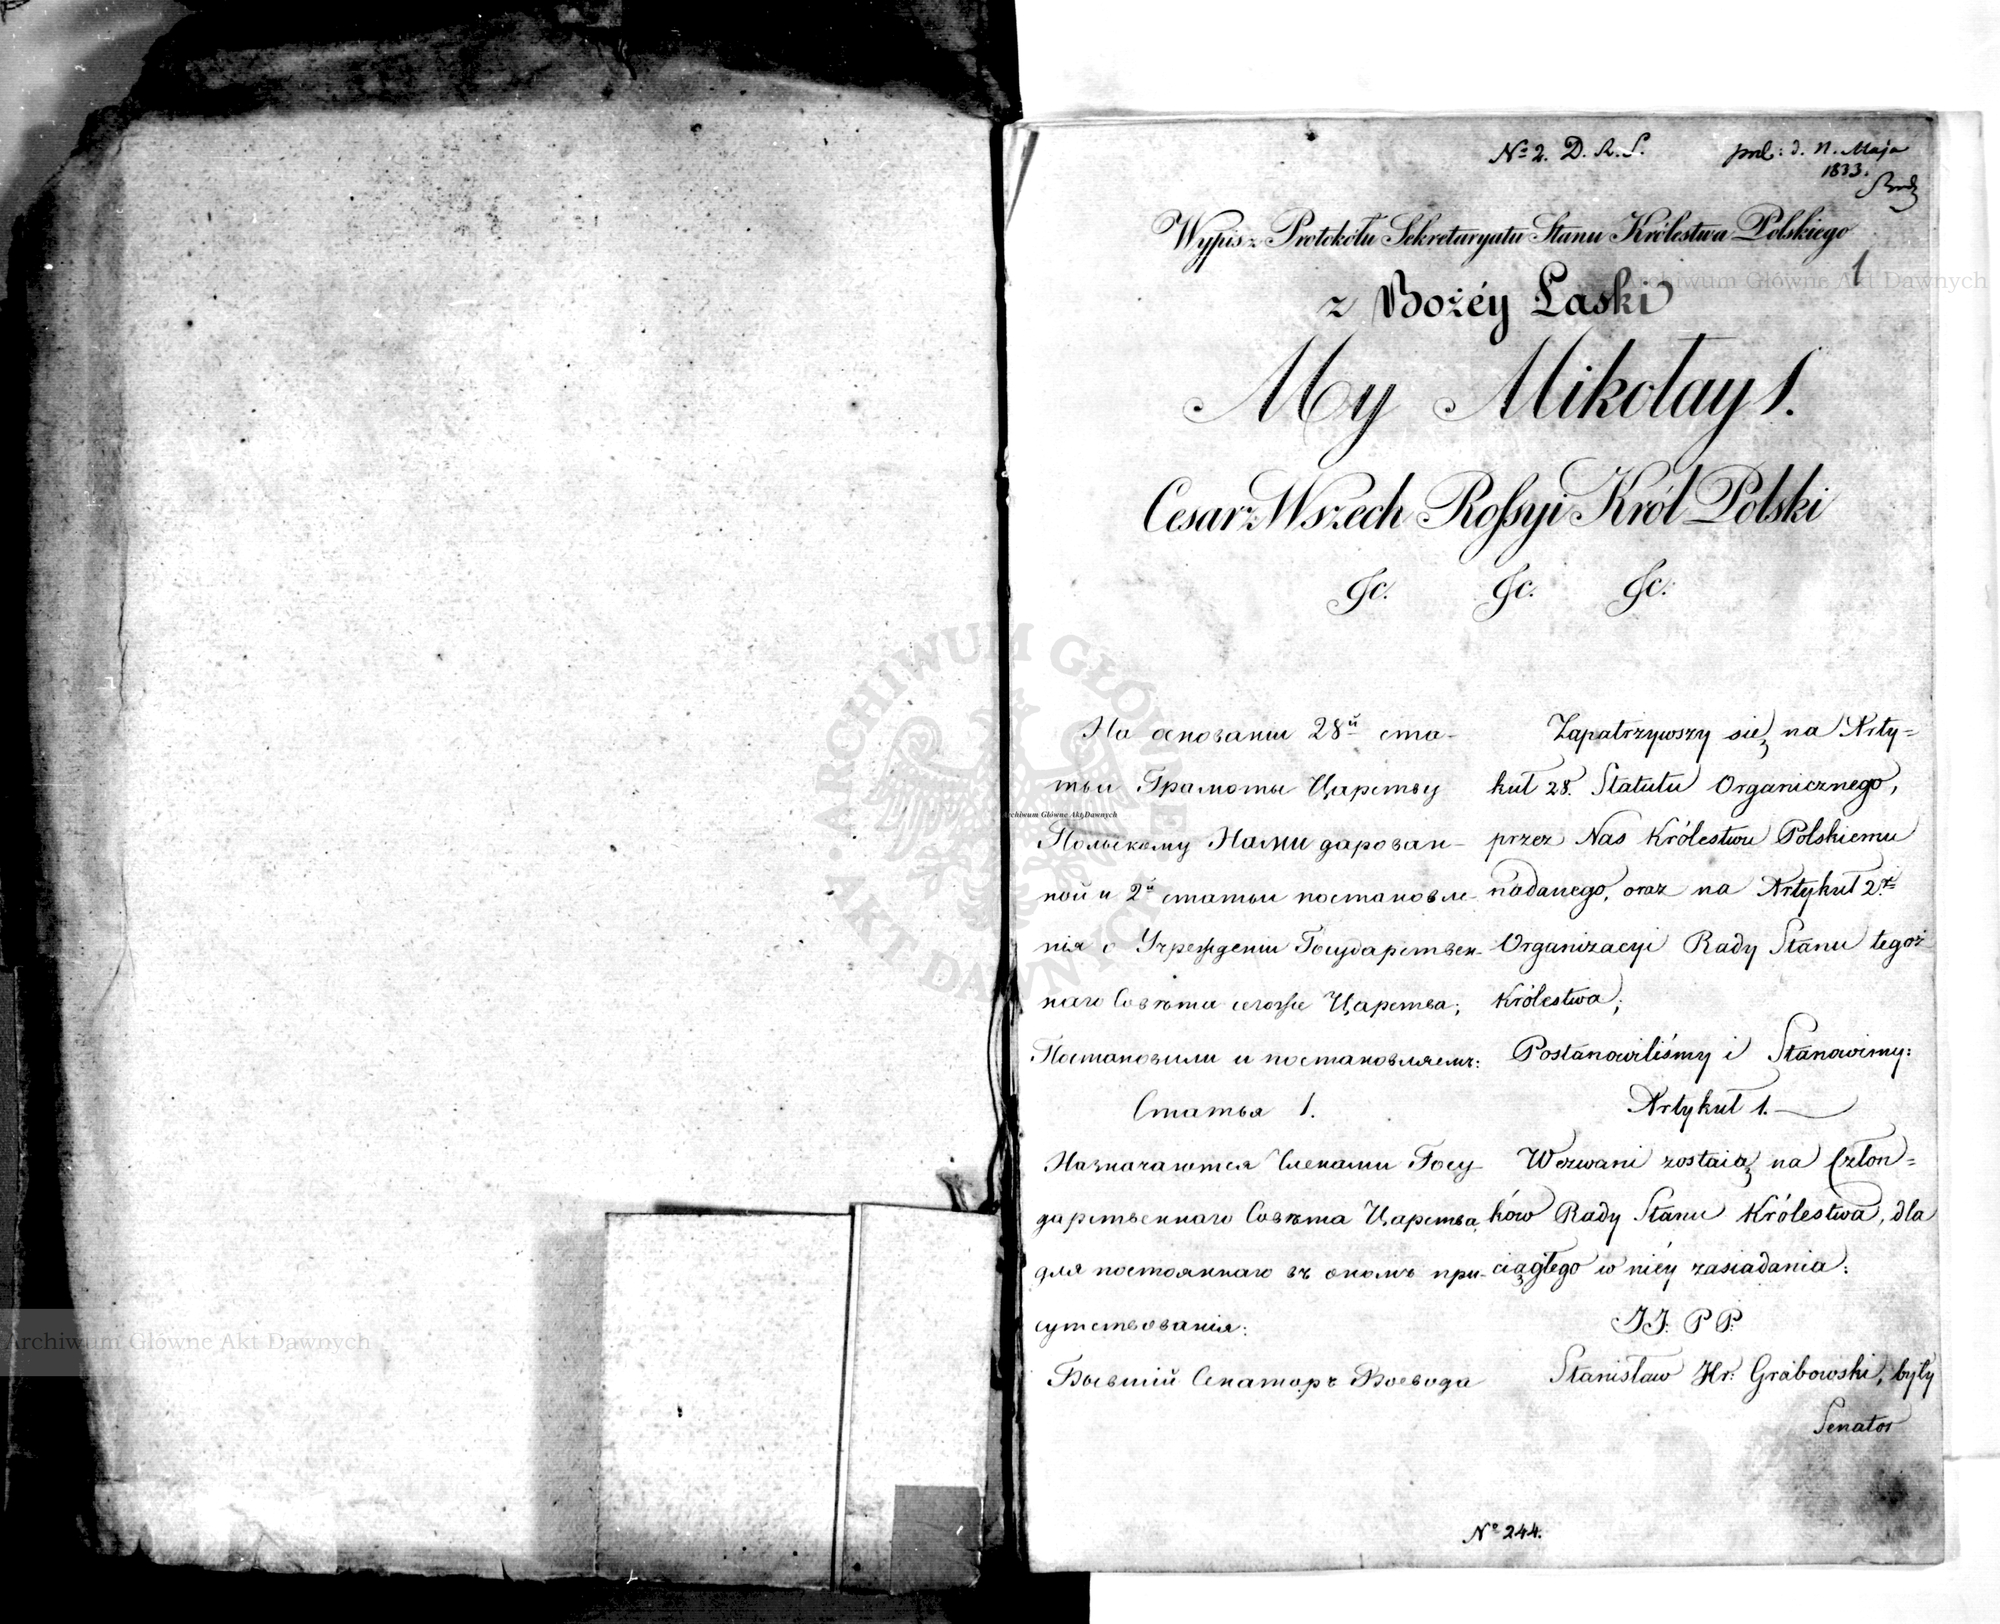 № 2. D. R. S.
Maja
1833.
1
Wypis z Protokółu Sekretaryatu Stanu Królestwa Polskiego
z Bożéy Łaski
My Mikołay I.
Cesarz Wszech Rossyi Król Polski
&c. &c. &c.
На основаніи 28й ста-
тьи Грамоты Царству
Польскому Нами дарован-
ной и 2й статьи постановле-
нія о Учрежденіи Государствен-
наго Совѣта сегоже Царства;
Постановили и постановляемъ:
Статья 1.
Назначаются Членами Госу-
дарственнаго Совѣта Царства,
для постояннаго въ ономъ при-
сутствованія:
Бывшій Сенаторъ Воевода
Zapatrzywszy się na Arty=
kuł 28. Statutu Organicznego,
przez Nas Królestwu Polskiemu
nadanego, oraz na Artykuł 2gi
Organizacyi Rady Stanu tegoż
Królestwa;
Postanowiliśmy i Stanowimy:
Artykuł 1.
Wezwani zostaią na Człon=
ków Rady Stanu Królestwa, dla
ciągłego w niéy zasiadania:
JJ: PP:
Stanisław Hr: Grabowski, były
Senator
№ 244.
Archiwum Główne Akt Dawnych
Archiwum Główne Akt Dawnych
Archiwum Główne Akt Dawnych
ARCHIWUM GŁÓWNE AKT DAWNYCH